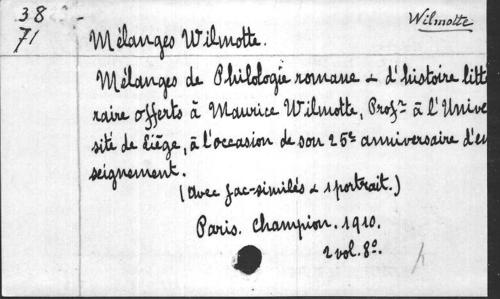 38
71
Wilmotte
Mélanges Wilmotte.
Mélanges de Philologie romane & d'histoire litté
raire offerts à Maurice Wilmotte, Profr à l'Univer
sité de Liége, à l'occasion de son 25e anniversaire d'en
seignement.
(avec fac-similés & 1 portrait.)
Paris. Champion. 1910.
2 vol. 8o.